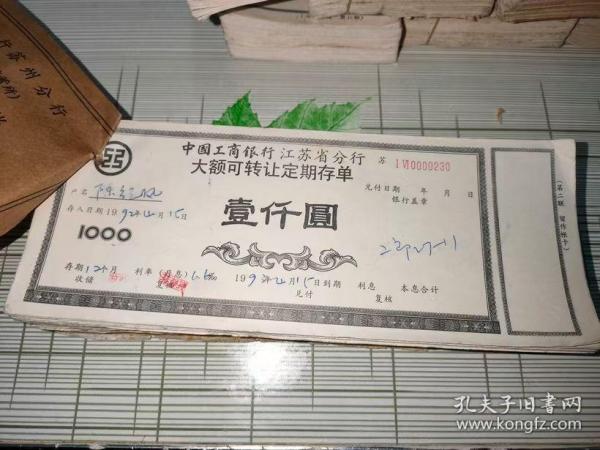 行苏州分行
中国工商银行江苏省分行 苏 IVI0000230
大额可转让定期存单
兑付日期 年 月 日
银行盖章
户名
存入日期19 年 月15日
壹仟圆
1000
存期12个月 利率(月息) 199 年 月15日到期 利息 本息合计
收储 复核 兑付 复核
(第二联 留作帐卡)
孔夫子旧书网
www.kongfz.com